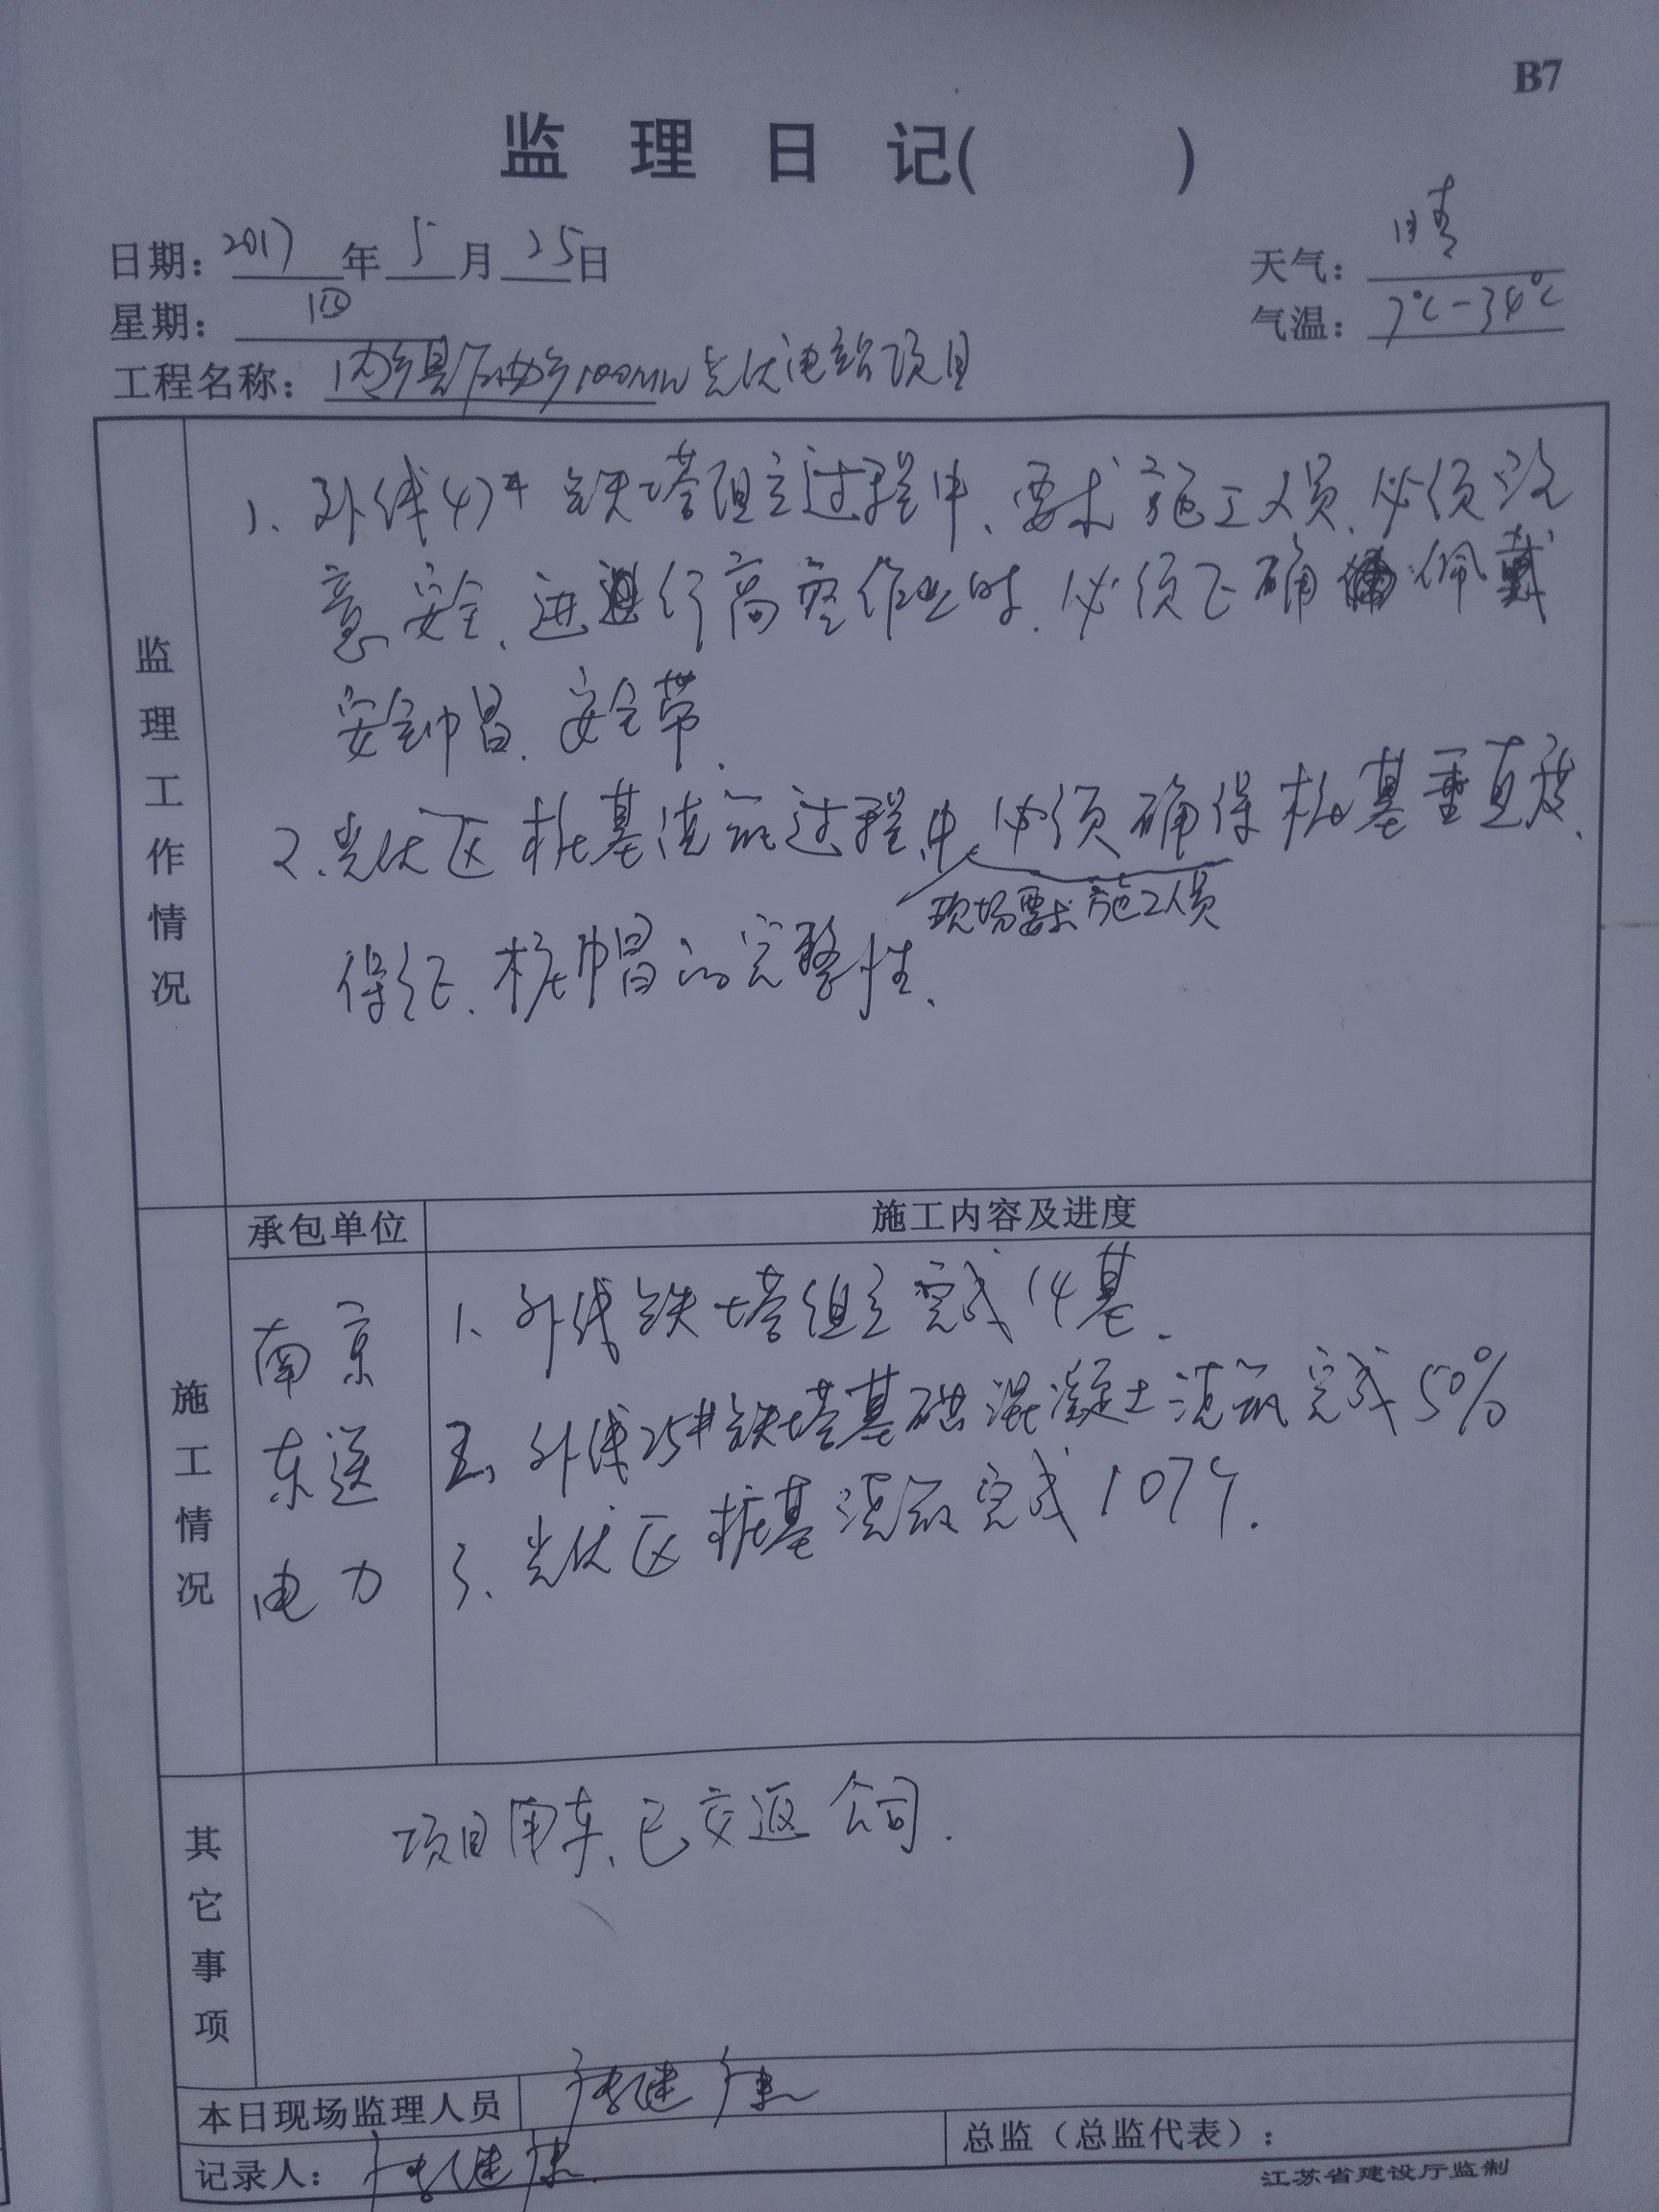 B7
监理日记( )
日期：2017年5月25日
天气：晴
星期：四
气温：7℃-34℃
工程名称：内乡县 100MW光伏电站项目
监理工作情况
1、外线47#铁塔组立过程中、要求施工人员、必须注
意安全、进行高空作业时、必须正确佩戴
安全帽、安全带.
2、光伏区桩基浇筑过程中必须确保桩基垂直度、
现场要求施工人员
保证、桩帽的完整性、
承包单位
施工内容及进度
施工情况
南京
东送
电力
1、外线铁塔组立完成14基.
2、外线25#铁塔基础混凝土浇筑完成50%
3、光伏区桩基浇筑完成107个.
其它事项
项目用车、已交返公司.
本日现场监理人员
记录人：
总监（总监代表）：
江苏省建设厅监制